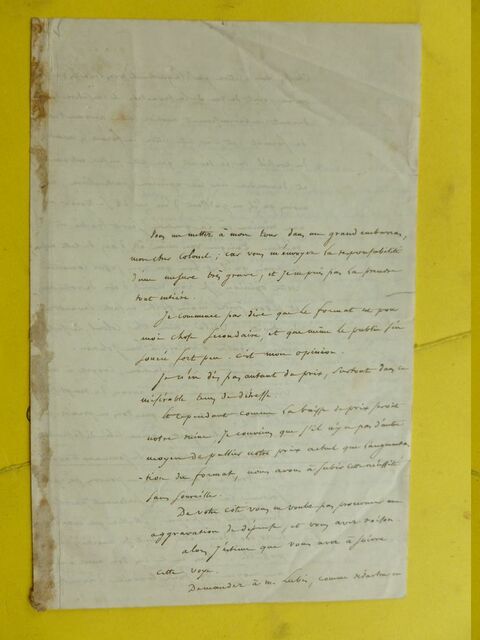 Vous me mettez à mon tour dans un grand embarras,
mon cher Colonel; car vous m'envoyez la responsabilité
d'une mesure très grave, et je ne puis pas la prendre
tout entière.
Je commence par dire que le format est pour
moi chose secondaire, et que même le public s'en
soucie fort peu. c'est mon opinion.
Je n'en dis pas autant du prix, surtout dans ce
misérable tems de détresse.
Cependant comme la baisse de prix serait
votre ruine, je conviens que s'il n'y a pas d'autre
moyen de pallier votre prix actuel que l'augmenta-
-tion du format, nous avons à subir cette nécessité
sans sourciller.
De votre côté vous ne voulez pas procurer une
aggravation de dépense, et vous avez raison
alors j'estime que vous avez à suivre
cette voye.
Demandez à M. Lubis, comme rédacteur en